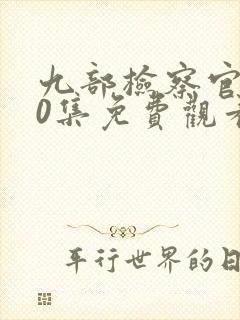 九部檢察官
0集免費觀看
平行世界的日